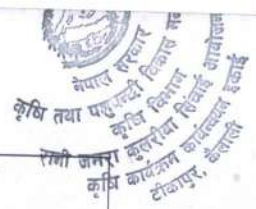 नेपाल सरकार
कृषि तथा पशुपन्छी विकास
कृषि विभाग
रानी जमरा कुलरीया सिंचाई आयोजना
कृषि कार्यक्रम कार्यान्वयन इकाई
टीकापुर, कैलाली